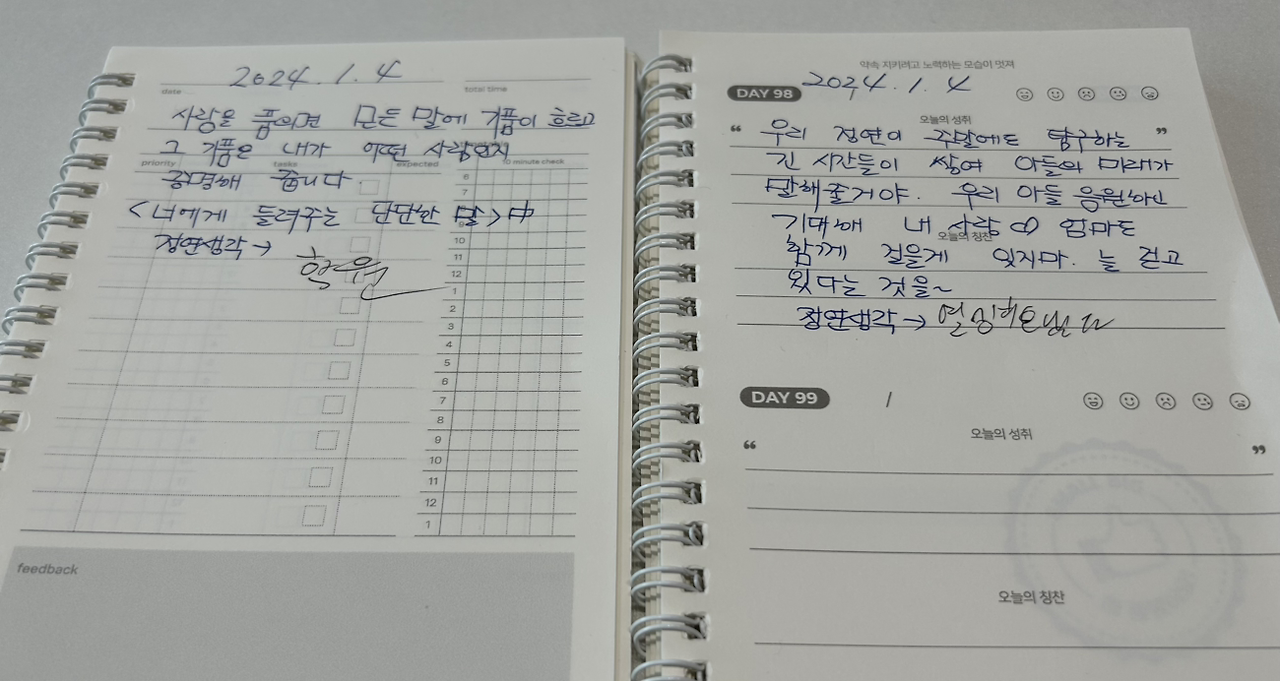 2024.1.4
date
total time
사랑을 품으면 모든 말에 기품이 흐르고
그 기품은 내가 어떤 사람인지
priority
tasks
expected
10 minute check
증명해 줍니다.
<너에게 들려주는 단단한 말> 中
정연생각→
6
7
9
10
11
12
1
2
3
4
5
6
7
8
9
10
11
12
1
feedback
약속 지키려고 노력하는 모습이 멋져
DAY 98
2024.1.4
오늘의 성취
“ 우리 정연이 주말에도 탐구하는 ”
긴 시간들이 쌓여 아들의 미래가
말해줄거야. 우리 아들 응원하고
기대해 내 사랑♡ 엄마도
오늘의 칭찬
함께 걸을게 잊지마. 늘 걷고
있다는 것을~
정연생각→
DAY 99
/
오늘의 성취
“ ”
오늘의 칭찬